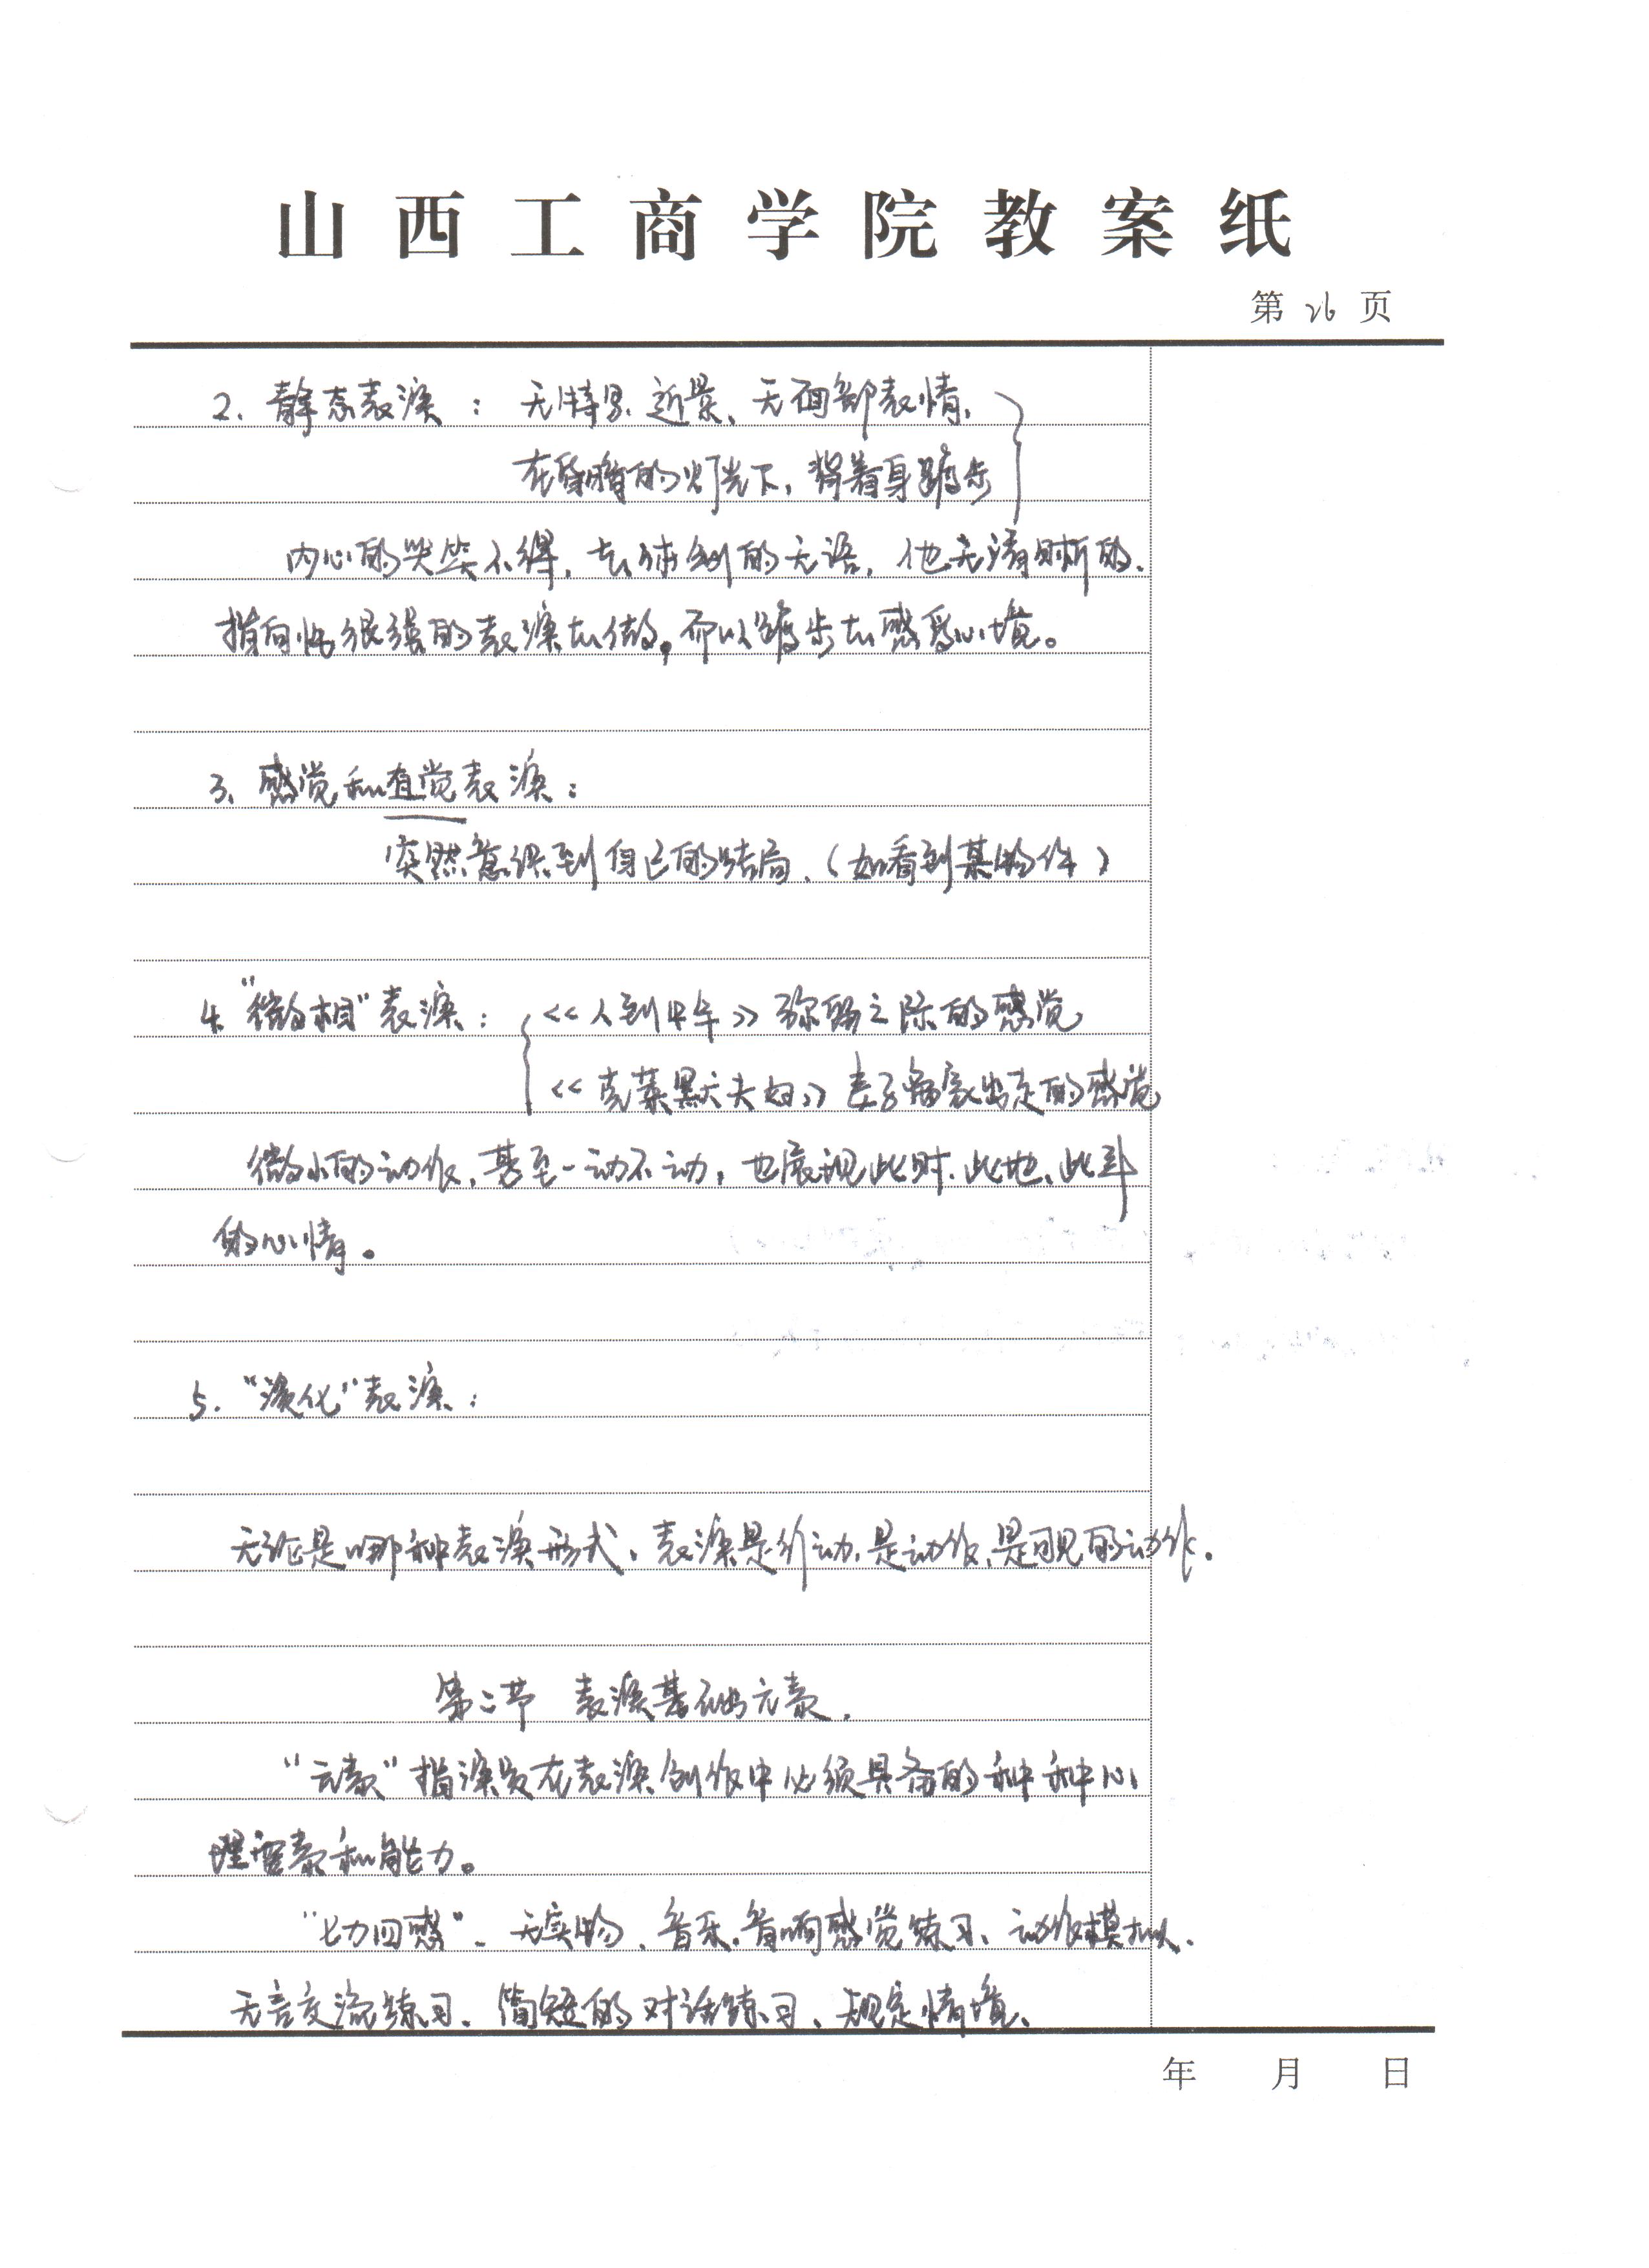 山西工商学院教案纸
第 26 页
2、静态表演：无特写、近景、无面部表情、
在昏暗的灯光下，背着身踱步
内心的哭笑不得，去体创的无语，他无清晰的、
指向性很强的表演去做，而以踱步去感受心境。
3、感觉和直觉表演：
突然意识到自己的结局、（如看到某物件）
4、“微相”表演：《人到中年》弥留之际的感觉
《克莱默夫妇》妻子离家出走的感觉
微小的动作，甚至一动不动，也展现此时、此地、此事
的心情。
5、“淡化”表演：
无论是哪种表演形式，表演是行动，是动作，是可见的动作。
第二节 表演基础元素、
“元素”指演员在表演创作中必须具备的种种心
理要素和能力。
“七力四感”、无实物、音乐、音响感觉练习、动作模拟、
无言交流练习、简短的对话练习、规定情境、
年 月 日